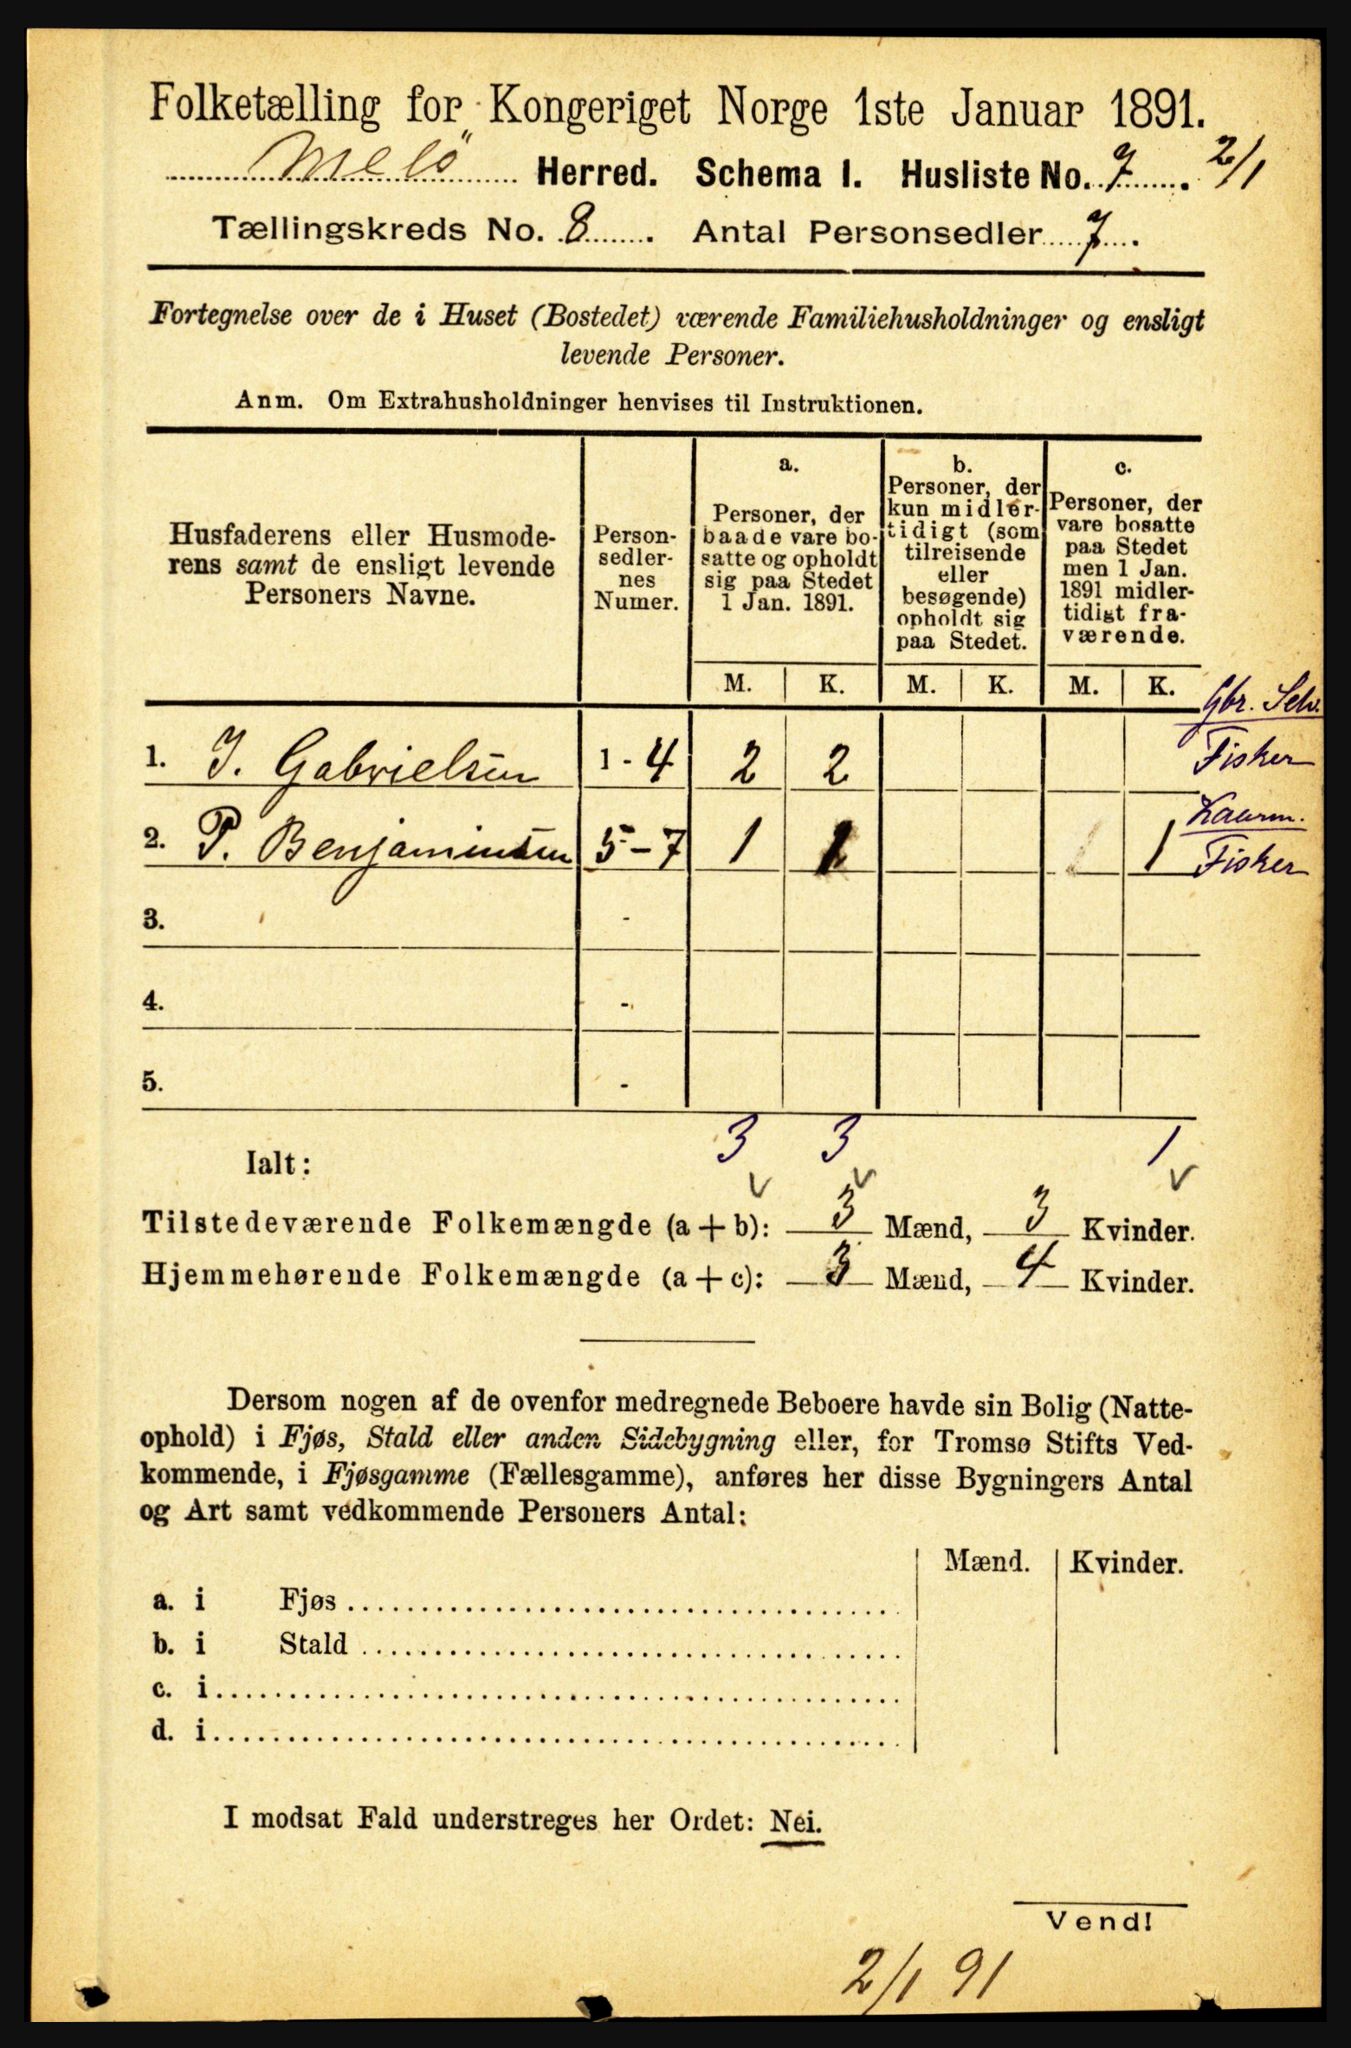 Folketælling for Kongeriget Norge 1ste Januar 1891.
Melö Herred. Schema 1. Husliste No. 7. 2/1
Tællingskreds No. 8. Antal Personsedler 7.
Fortegnelse over de i Huset (Bostedet) værende Familiehusholdninger og ensligt
levende Personer.
Anm. Om Extrahusholdninger henvises til Instruktionen.
Husfaderens eller Husmode-
rens samt de ensligt levende
Personers Navne.
Person-
sedler-
nes
Numer.
a.
Personer, der
baade vare bo-
satte og opholdt
sig paa Stedet
1 Jan. 1891.
b.
Personer, der
kun midler-
tidigt (som
tilreisende
eller
besøgende)
opholdt sig
paa Stedet.
c.
Personer, der
vare bosatte
paa Stedet
men 1 Jan.
1891 midler-
tidigt fra-
værende.
M. K. M. K. M. K.
Gbr. Selv.
1. J. Gabrielsen 1-4 2 2 Fisker
2. P. Benjaminsen 5-7 1 1 1 Fisker
3. -
4. -
5. -
Ialt: 3 3 1
Tilstedeværende Folkemængde (a + b): 3 Mænd, 3 Kvinder.
Hjemmehørende Folkemængde (a + c): 3 Mænd, 4 Kvinder.
Dersom nogen af de ovenfor medregnede Beboere havde sin Bolig (Natte-
ophold) i Fjøs, Stald eller anden Sidebygning eller, for Tromsø Stifts Ved-
kommende, i Fjøsgamme (Fællesgamme), anføres her disse Bygningers Antal
og Art samt vedkommende Personers Antal:
Mænd. Kvinder.
a. i Fjøs
b. i Stald
c. i
d. i
I modsat Fald understreges her Ordet: Nei.
Vend!
2/1 91